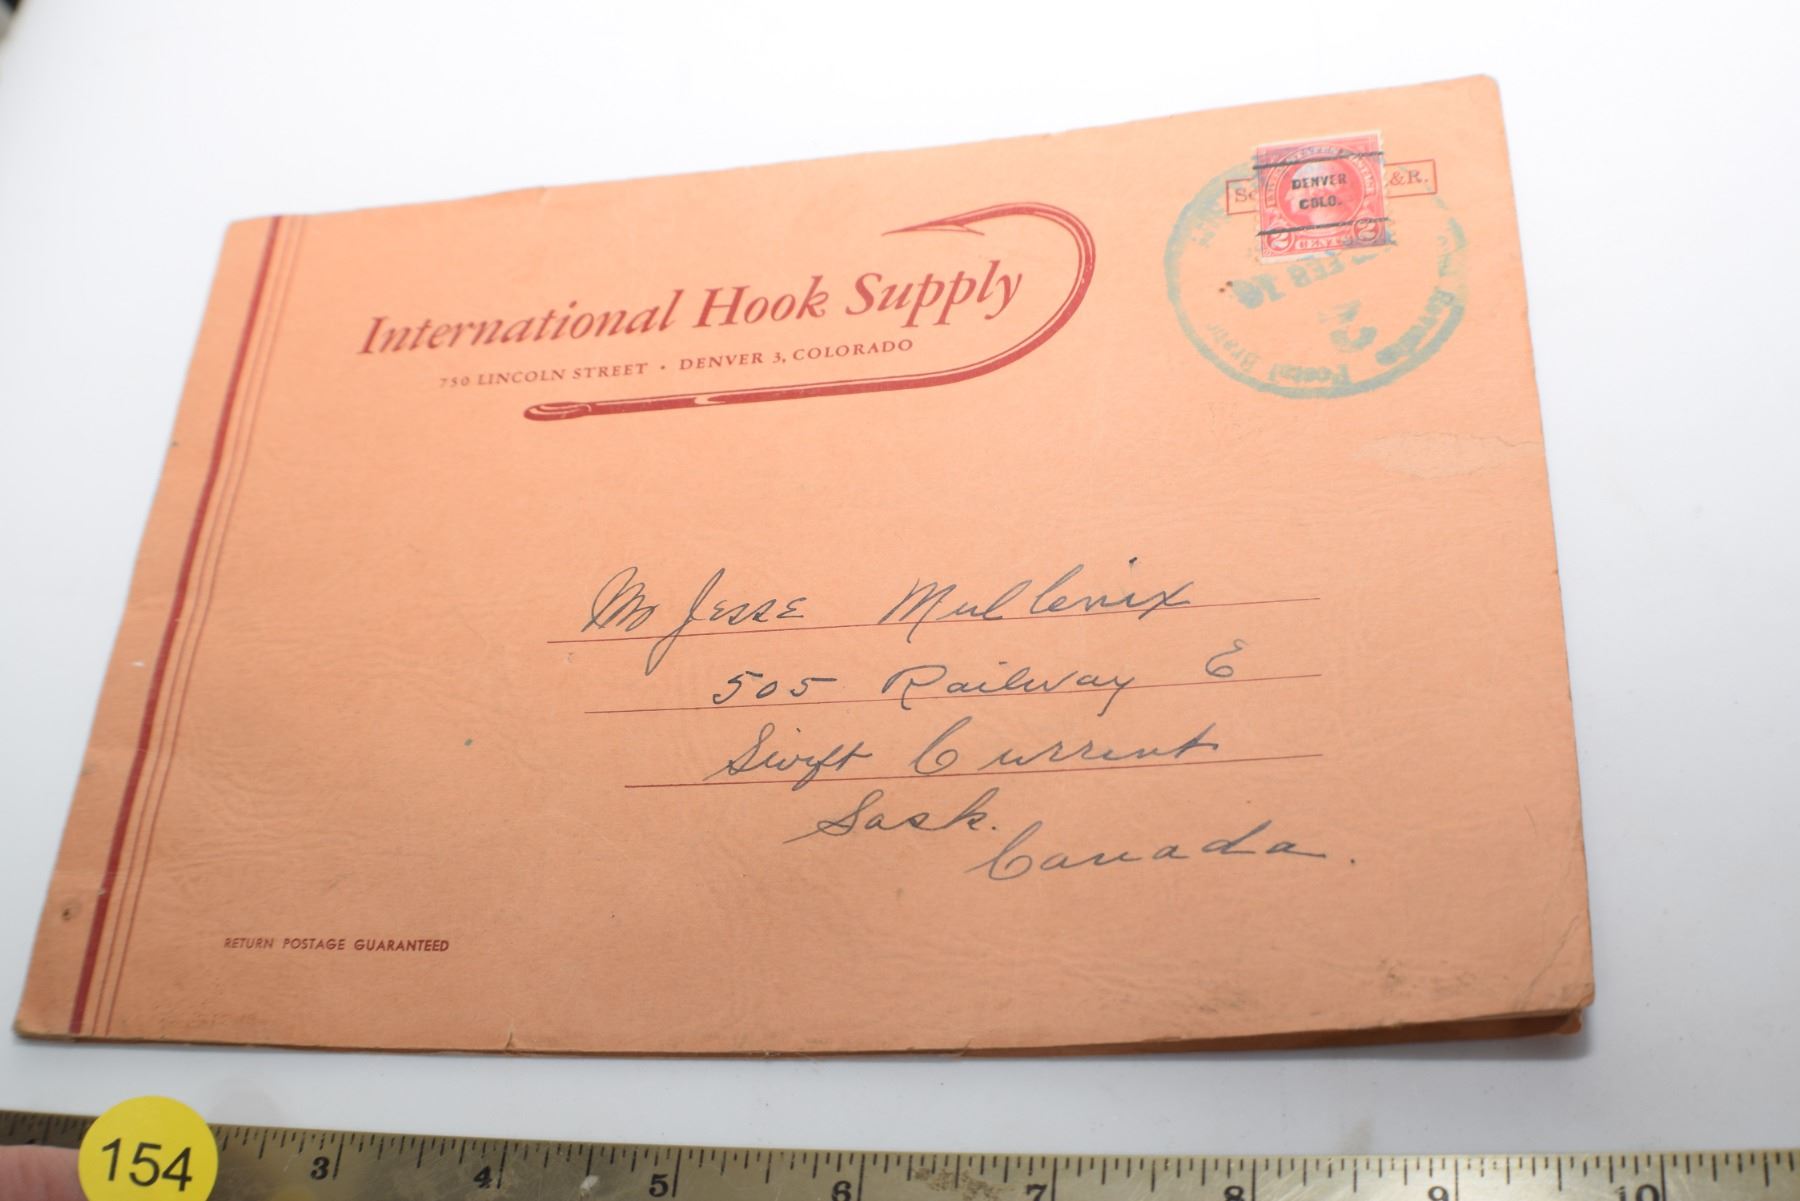 International Hook Supply
750 LINCOLN STREET · DENVER 3, COLORADO
&R.
DENVER
COLO.
2 CENTS 2
FEB 16
Postal
Mr Jesse Mullenix
505 Railway E
Swift Current
Sask.
Canada.
RETURN POSTAGE GUARANTEED
154
3 4 5 6 7 8 9 10